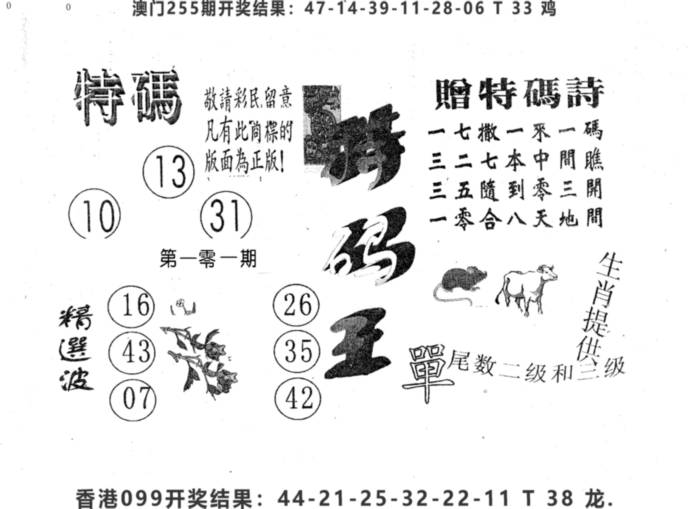 澳门255期开奖结果：47-14-39-11-28-06 T 33 鸡
特碼
敬請彩民留意
凡有此商標的
版面為正版!
13
10
31
第一零一期
特码王
贈特碼詩
一七撒一來一碼
三二七本中間瞧
三五隨到零三開
一零合八天地間
生肖提供
精選波
16
43
07
26
35
42
單尾数二级和三级
香港099开奖结果：44-21-25-32-22-11 T 38 龙.